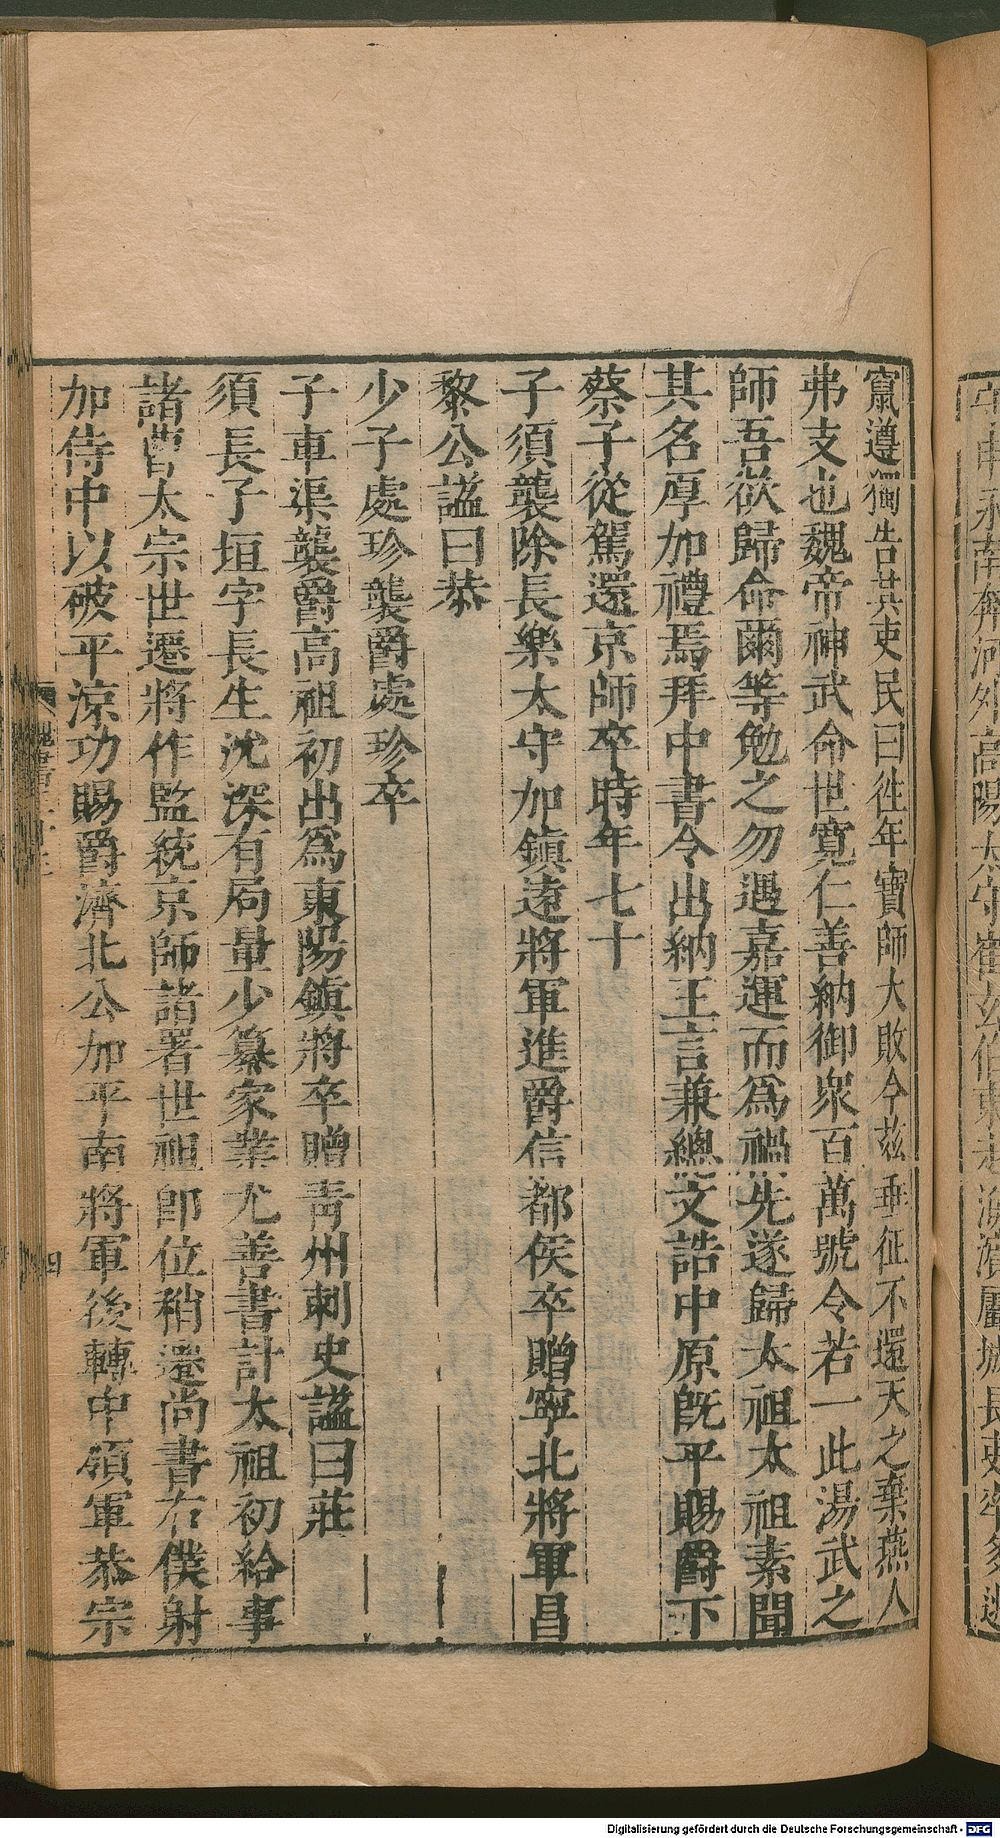 竄遵獨告其吏民曰往年寶師大敗今茲垂征不還天之棄燕人
弗支也魏帝神武命世寬仁善納御眾百萬號令若一此湯武之
師吾欲歸命爾等勉之勿遇嘉運而為禍先遂歸太祖太祖素聞
其名厚加禮焉拜中書令出納王言兼總文誥中原既平賜爵下
蔡子從駕還京師卒時年七十
子須襲除長樂太守加鎮遠將軍進爵信都侯卒贈寧北將軍昌
黎公謚曰恭
少子處珍襲爵處珍卒
子車渠襲爵高祖初出為東陽鎮將卒贈青州刺史謚曰莊
須長子垣字長生沈深有局量少纂家業尤善書計太祖初給事
諸曹太宗世遷將作監統京師諸署世祖即位稍遷尚書右僕射
加侍中以破平涼功賜爵濟北公加平南將軍後轉中領軍恭宗
四
Digitalisierung gefördert durch die Deutsche Forschungsgemeinschaft - DFG